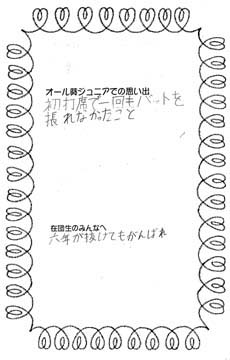 オール蕣ジュニアでの思い出
初打席で一回もバットを
振れなかったこと
在団生のみんなへ
六年が抜けてもがんばれ